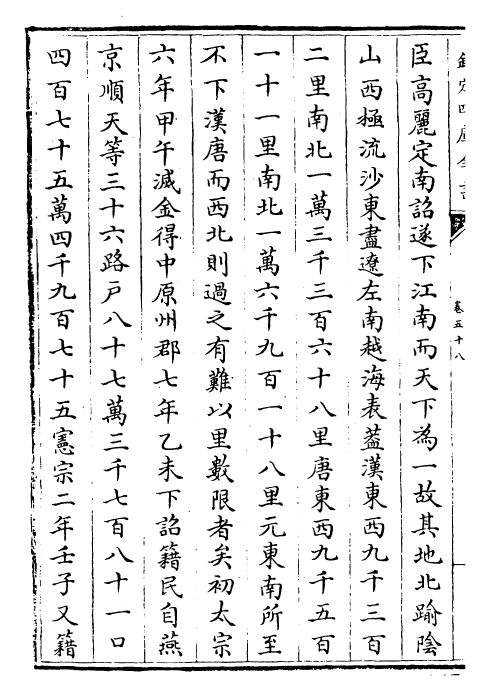 欽定四庫全書
卷五十八
臣高麗定南詔遂下江南而天下為一故其地北踰陰
山西極流沙東盡遼左南越海表葢漢東西九千三百
二里南北一萬三千三百六十八里唐東西九千五百
一十一里南北一萬六千九百一十八里元東南所至
不下漢唐而西北則過之有難以里數限者矣初太宗
六年甲午滅金得中原州郡七年乙未下詔籍民自燕
京順天等三十六路戶八十七萬三千七百八十一口
四百七十五萬四千九百七十五憲宗二年壬子又籍